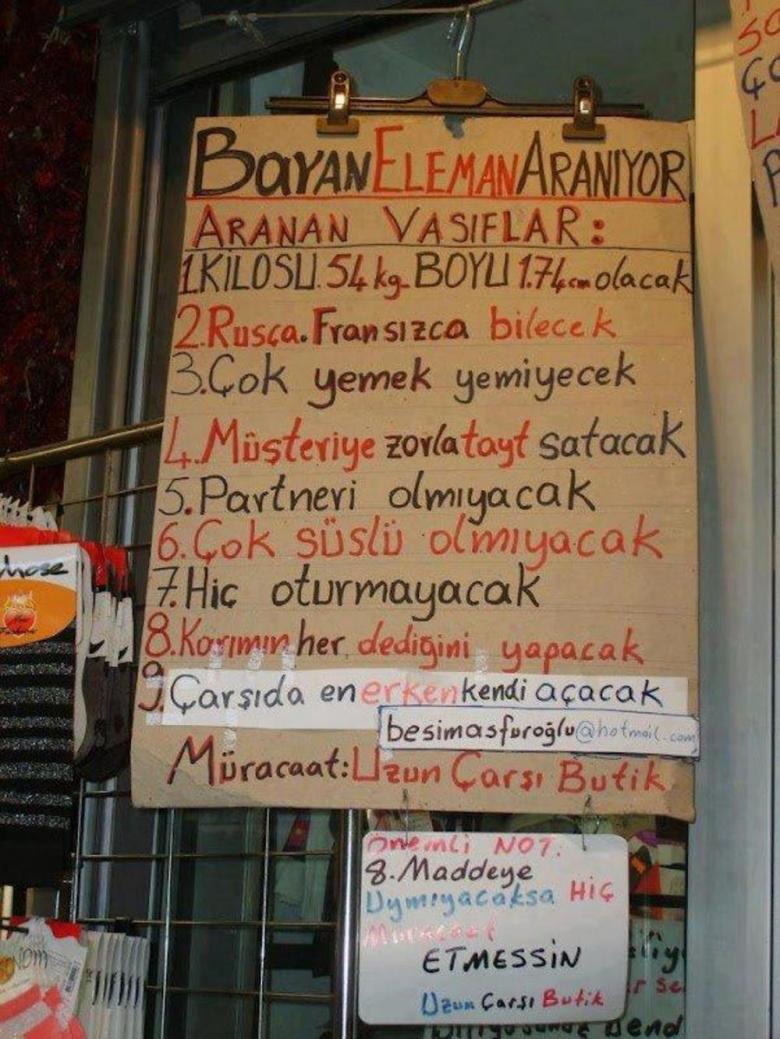 BayAN ELEMAN ARANIYOR
ARANAN VASIFLAR:
1.KİLOSU.54kg.BOYU 1.74cm olacak
2.Rusça.Fransızca bilecek
3.Çok yemek yemiyecek
4.Müşteriye zorla tayt satacak
5.Partneri olmıyacak
6.Çok süslü olmıyacak
7.Hiç oturmayacak
8.Karımın her dediğini yapacak
9.Çarşıda en erken kendi açacak
besimasfuroğlu@hotmail.com
Müracaat:Uzun Çarşı Butik
Önemli NOT:
8.Maddeye
Uymıyacaksa HİÇ
Müracaat
ETMESSİN
Uzun Çarşı Butik